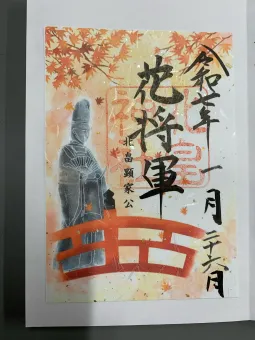 令和七年
一月
二十六日
花将軍
北畠顕家公